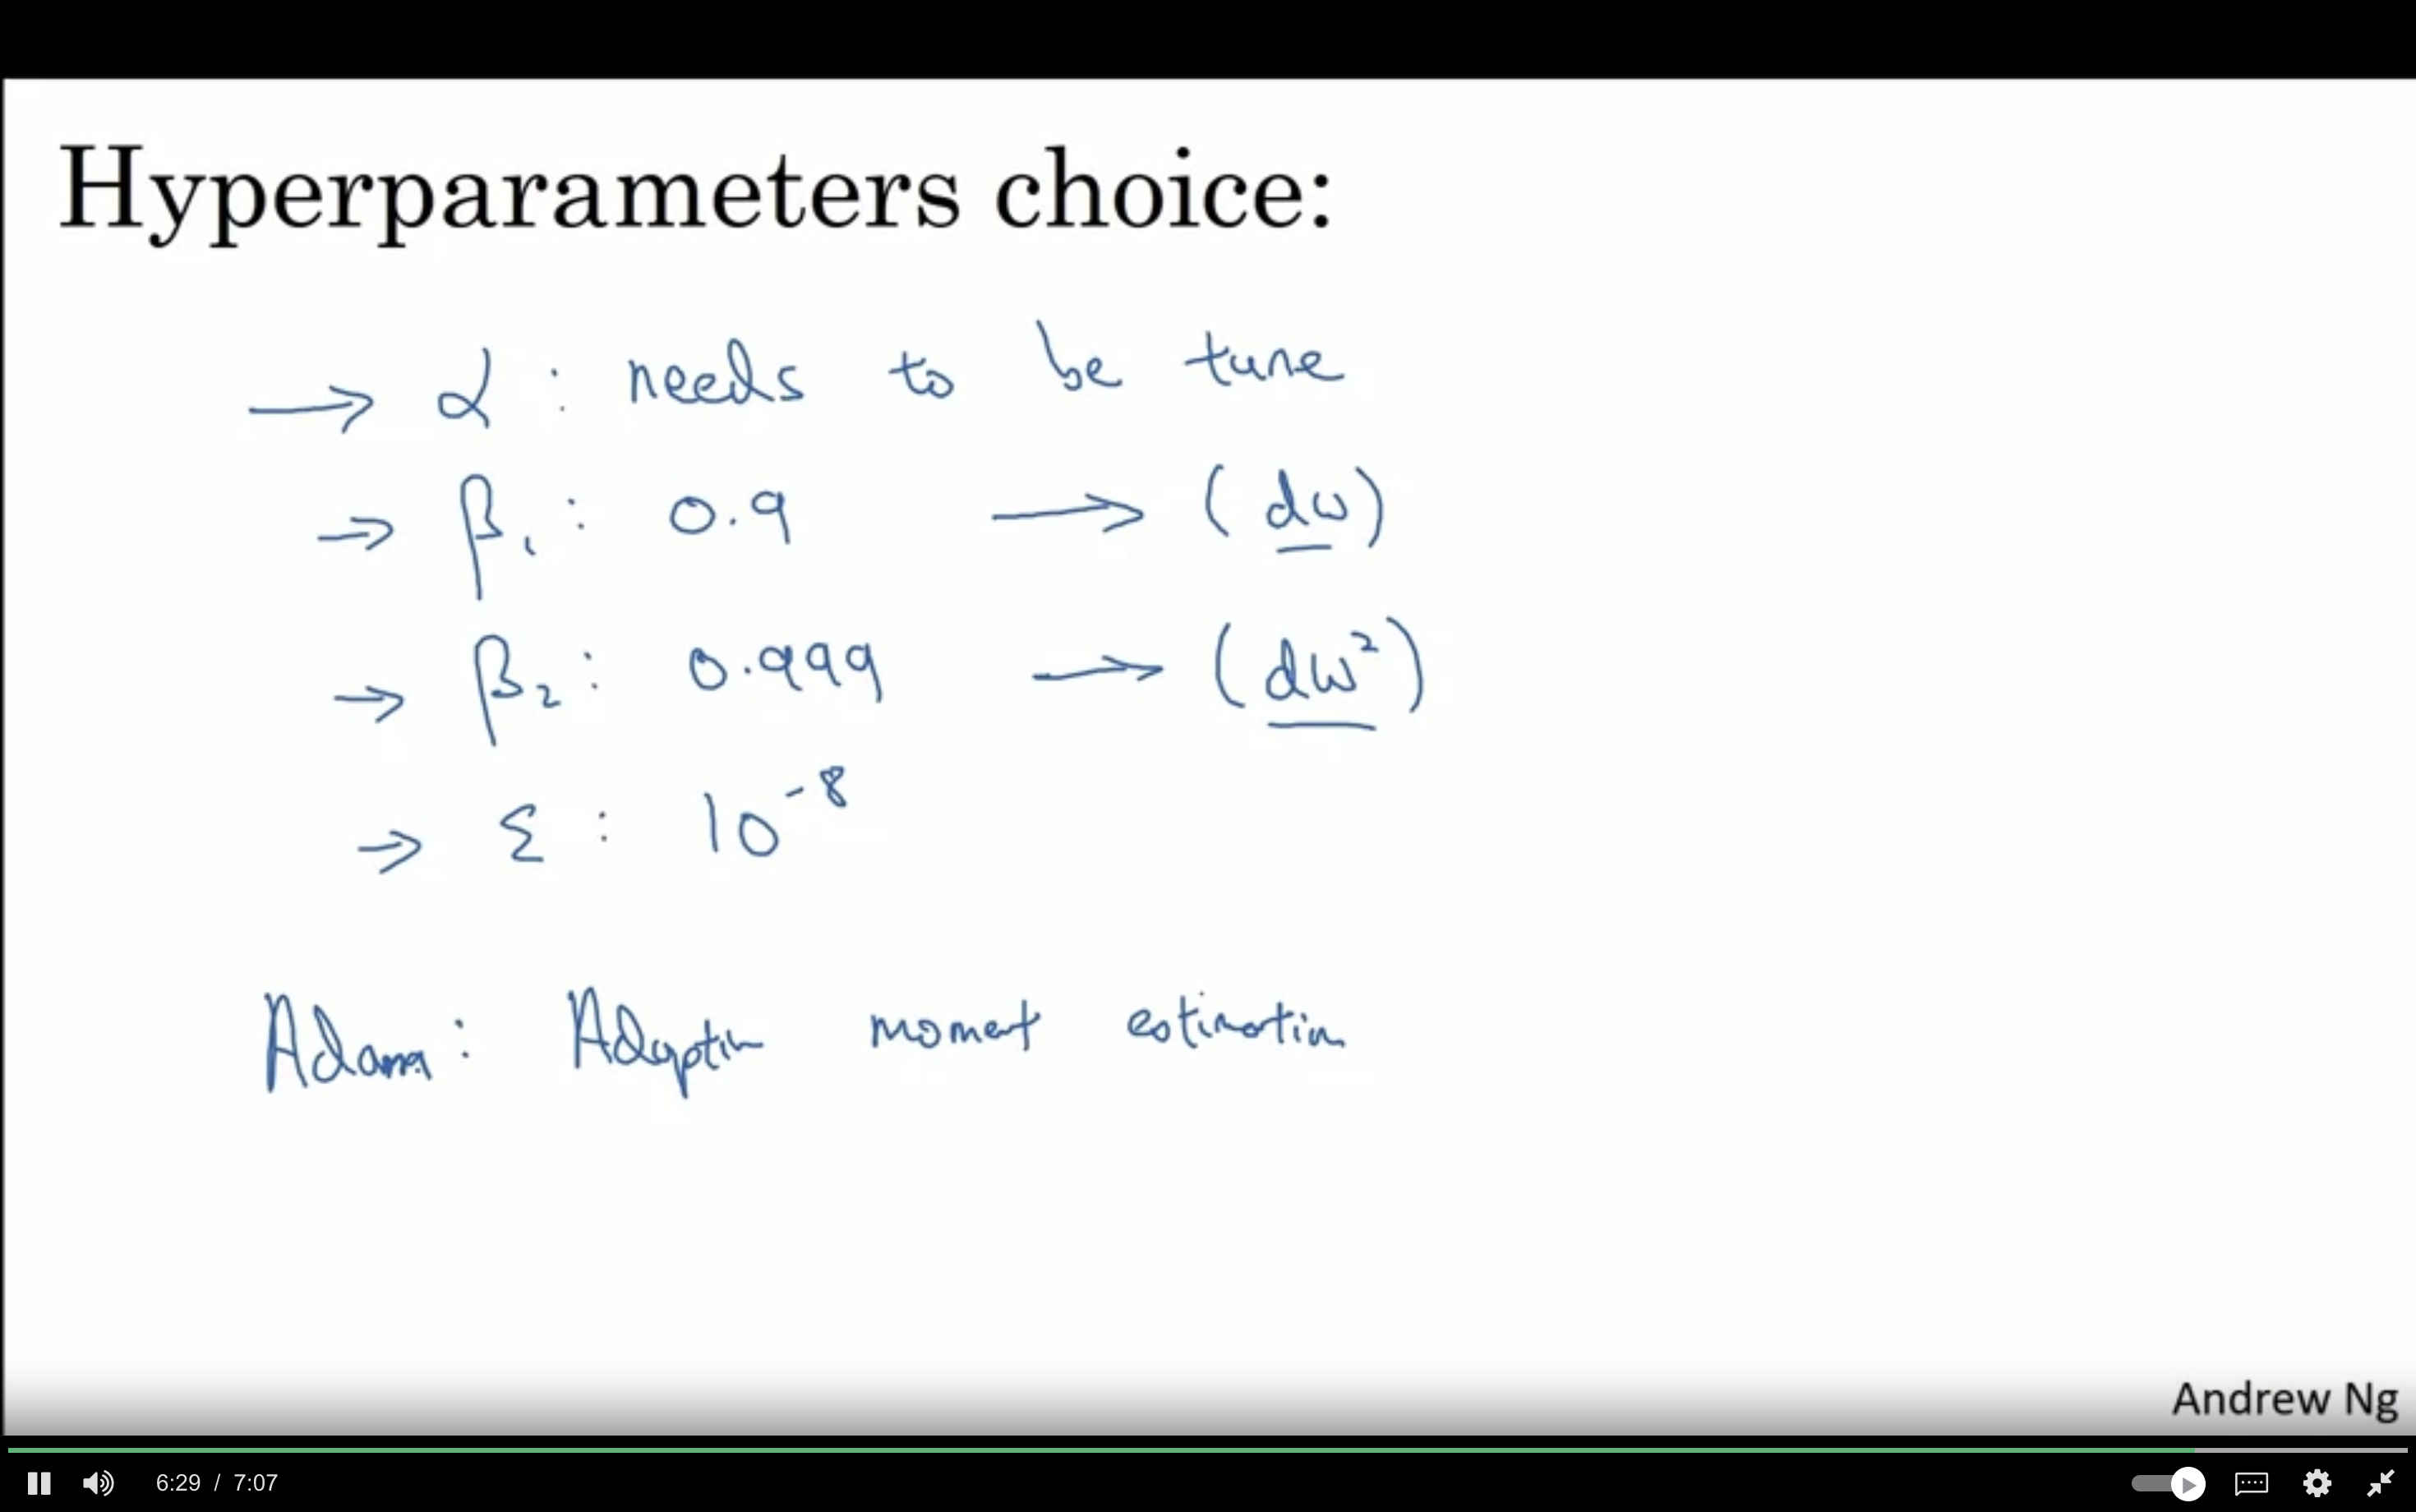 Hyperparameters choice:
→ α : needs to be tune
→ β₁ : 0.9 → (dw)
→ β₂ : 0.999 → (dw²)
→ ε : 10⁻⁸
Adam : Adaptiv moment estimation
Andrew Ng
6:29 / 7:07